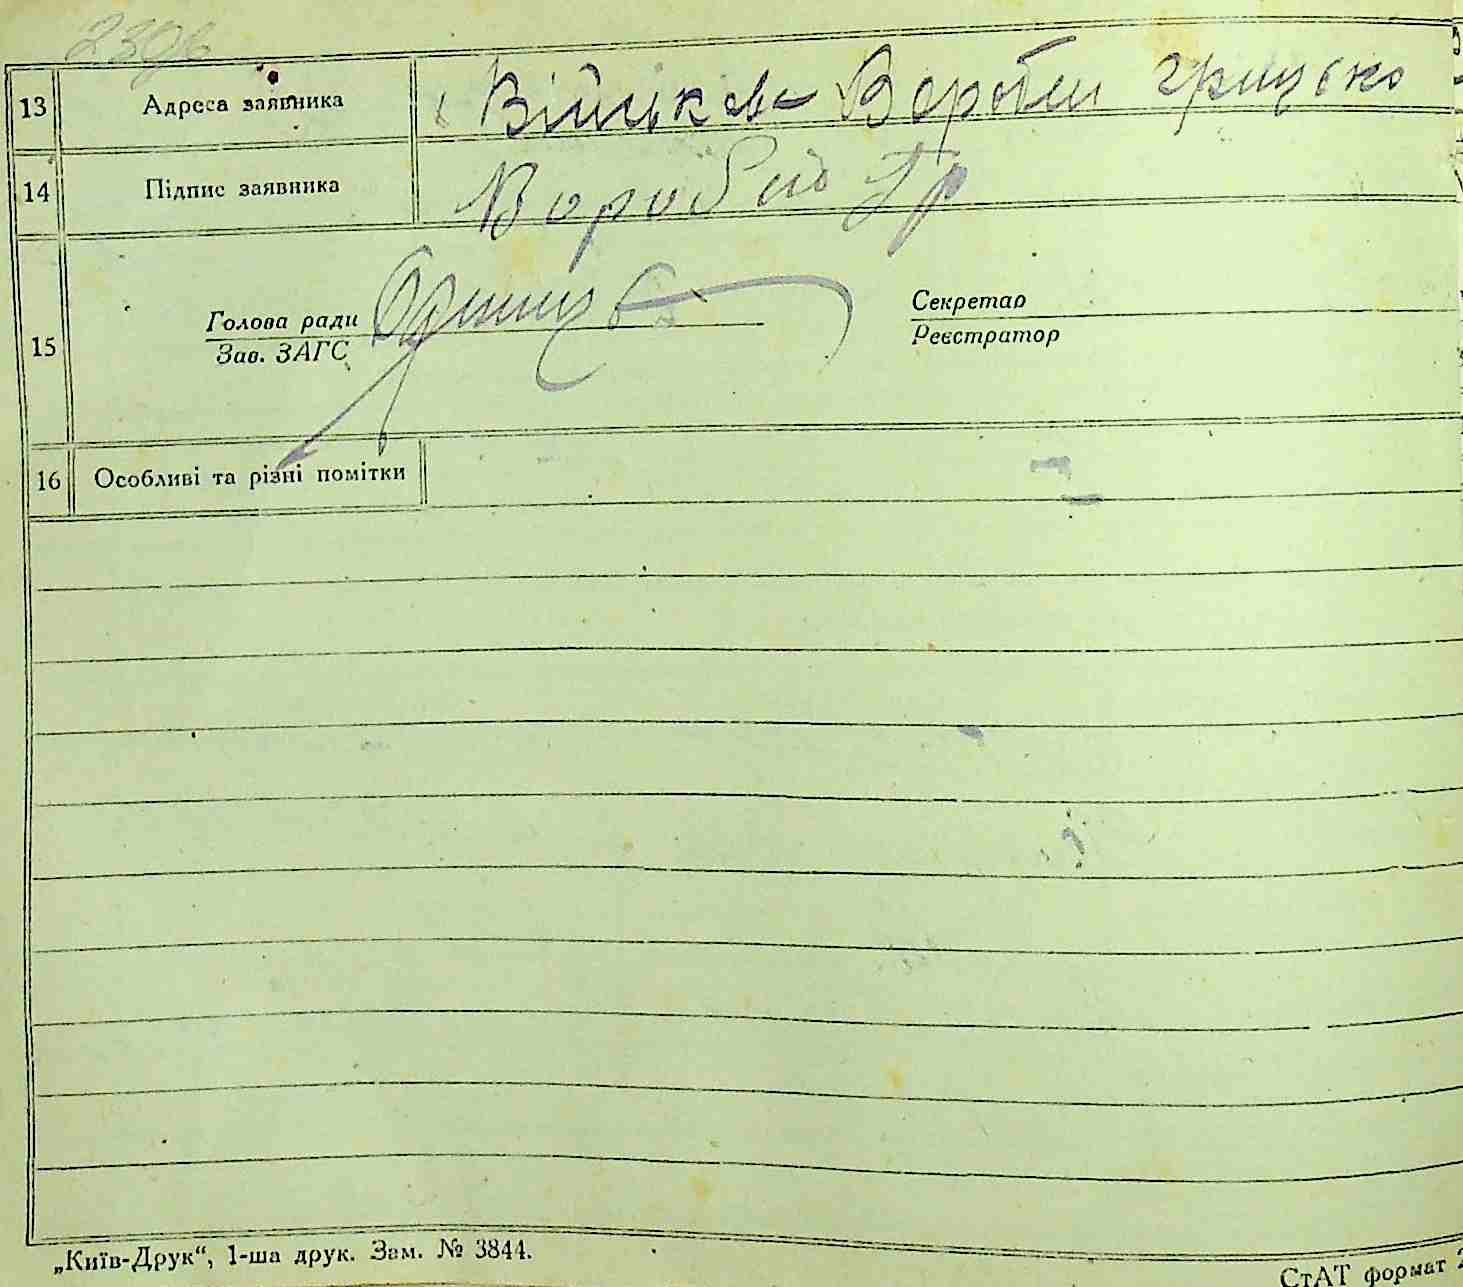 2306
13 Адреса заявника с Війсков Вороби грицько
14 Підпис заявника Воробей Гр
Голова ради
Секретар
15
Зав. ЗАГС
Реєстратор
16 Особливі та різні помітки
„Київ-Друк“, 1-ша друк. Зам. № 3844.
СтАТ формат 2